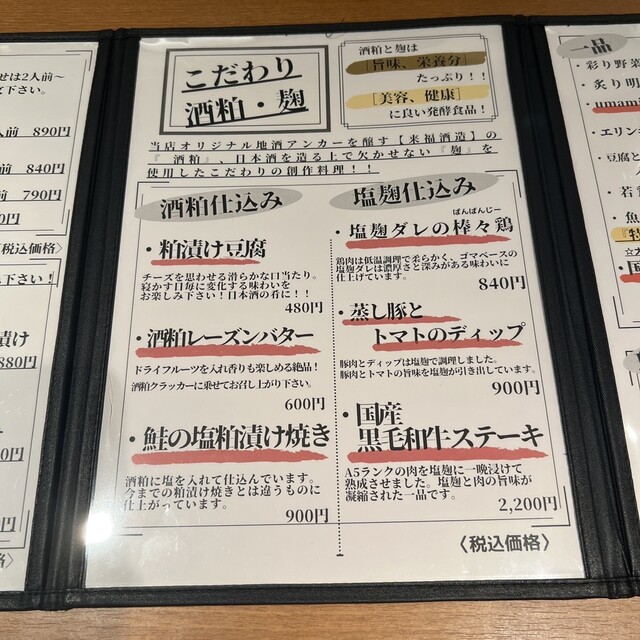 せは2人前〜
て下さい。
人前 890円
前 840円
前 790円
0円
税込価格〉
下さい！
漬け
880円
0円
円
格〉
こだわり
酒粕・麹
酒粕と麹は
[旨味、栄養分]
たっぷり！！
[美容、健康]
に良い発酵食品！
当店オリジナル地酒アンカーを醸す【来福酒造】の
『酒粕』、日本酒を造る上で欠かせない『麹』を
使用したこだわりの創作料理！！
酒粕仕込み
・粕漬け豆腐
チーズを思わせる滑らかな口当たり。
寝かす日毎に変化する味わいを
お楽しみ下さい！日本酒の肴に！！
480円
・酒粕レーズンバター
ドライフルーツを入れ香りも楽しめる絶品！
酒粕クラッカーに乗せてお召し上がり下さい。
600円
・鮭の塩粕漬け焼き
酒粕に塩を入れて仕込んでいます。
今までの粕漬け焼きとは違うものに
仕上がっています。
900円
塩麹仕込み
ばんばんじー
・塩麹ダレの棒々鶏
鶏肉は低温調理で柔らかく、ゴマベースの
塩麹ダレは濃厚さと深みがある味わいに
仕上げています。
840円
・蒸し豚と
トマトのディップ
豚肉とディップは塩麹で調理しました。
豚肉とトマトの旨味を塩麹が引き出しています。
900円
・国産
黒毛和牛ステーキ
A5ランクの肉を塩麹に一晩浸けて
熟成させました。塩麹と肉の旨味が
凝縮された一品です。
2,200円
〈税込価格〉
一品
・彩り野菜
・炙り明
・umami
・エリン
・豆腐と
・若
・魚
『特